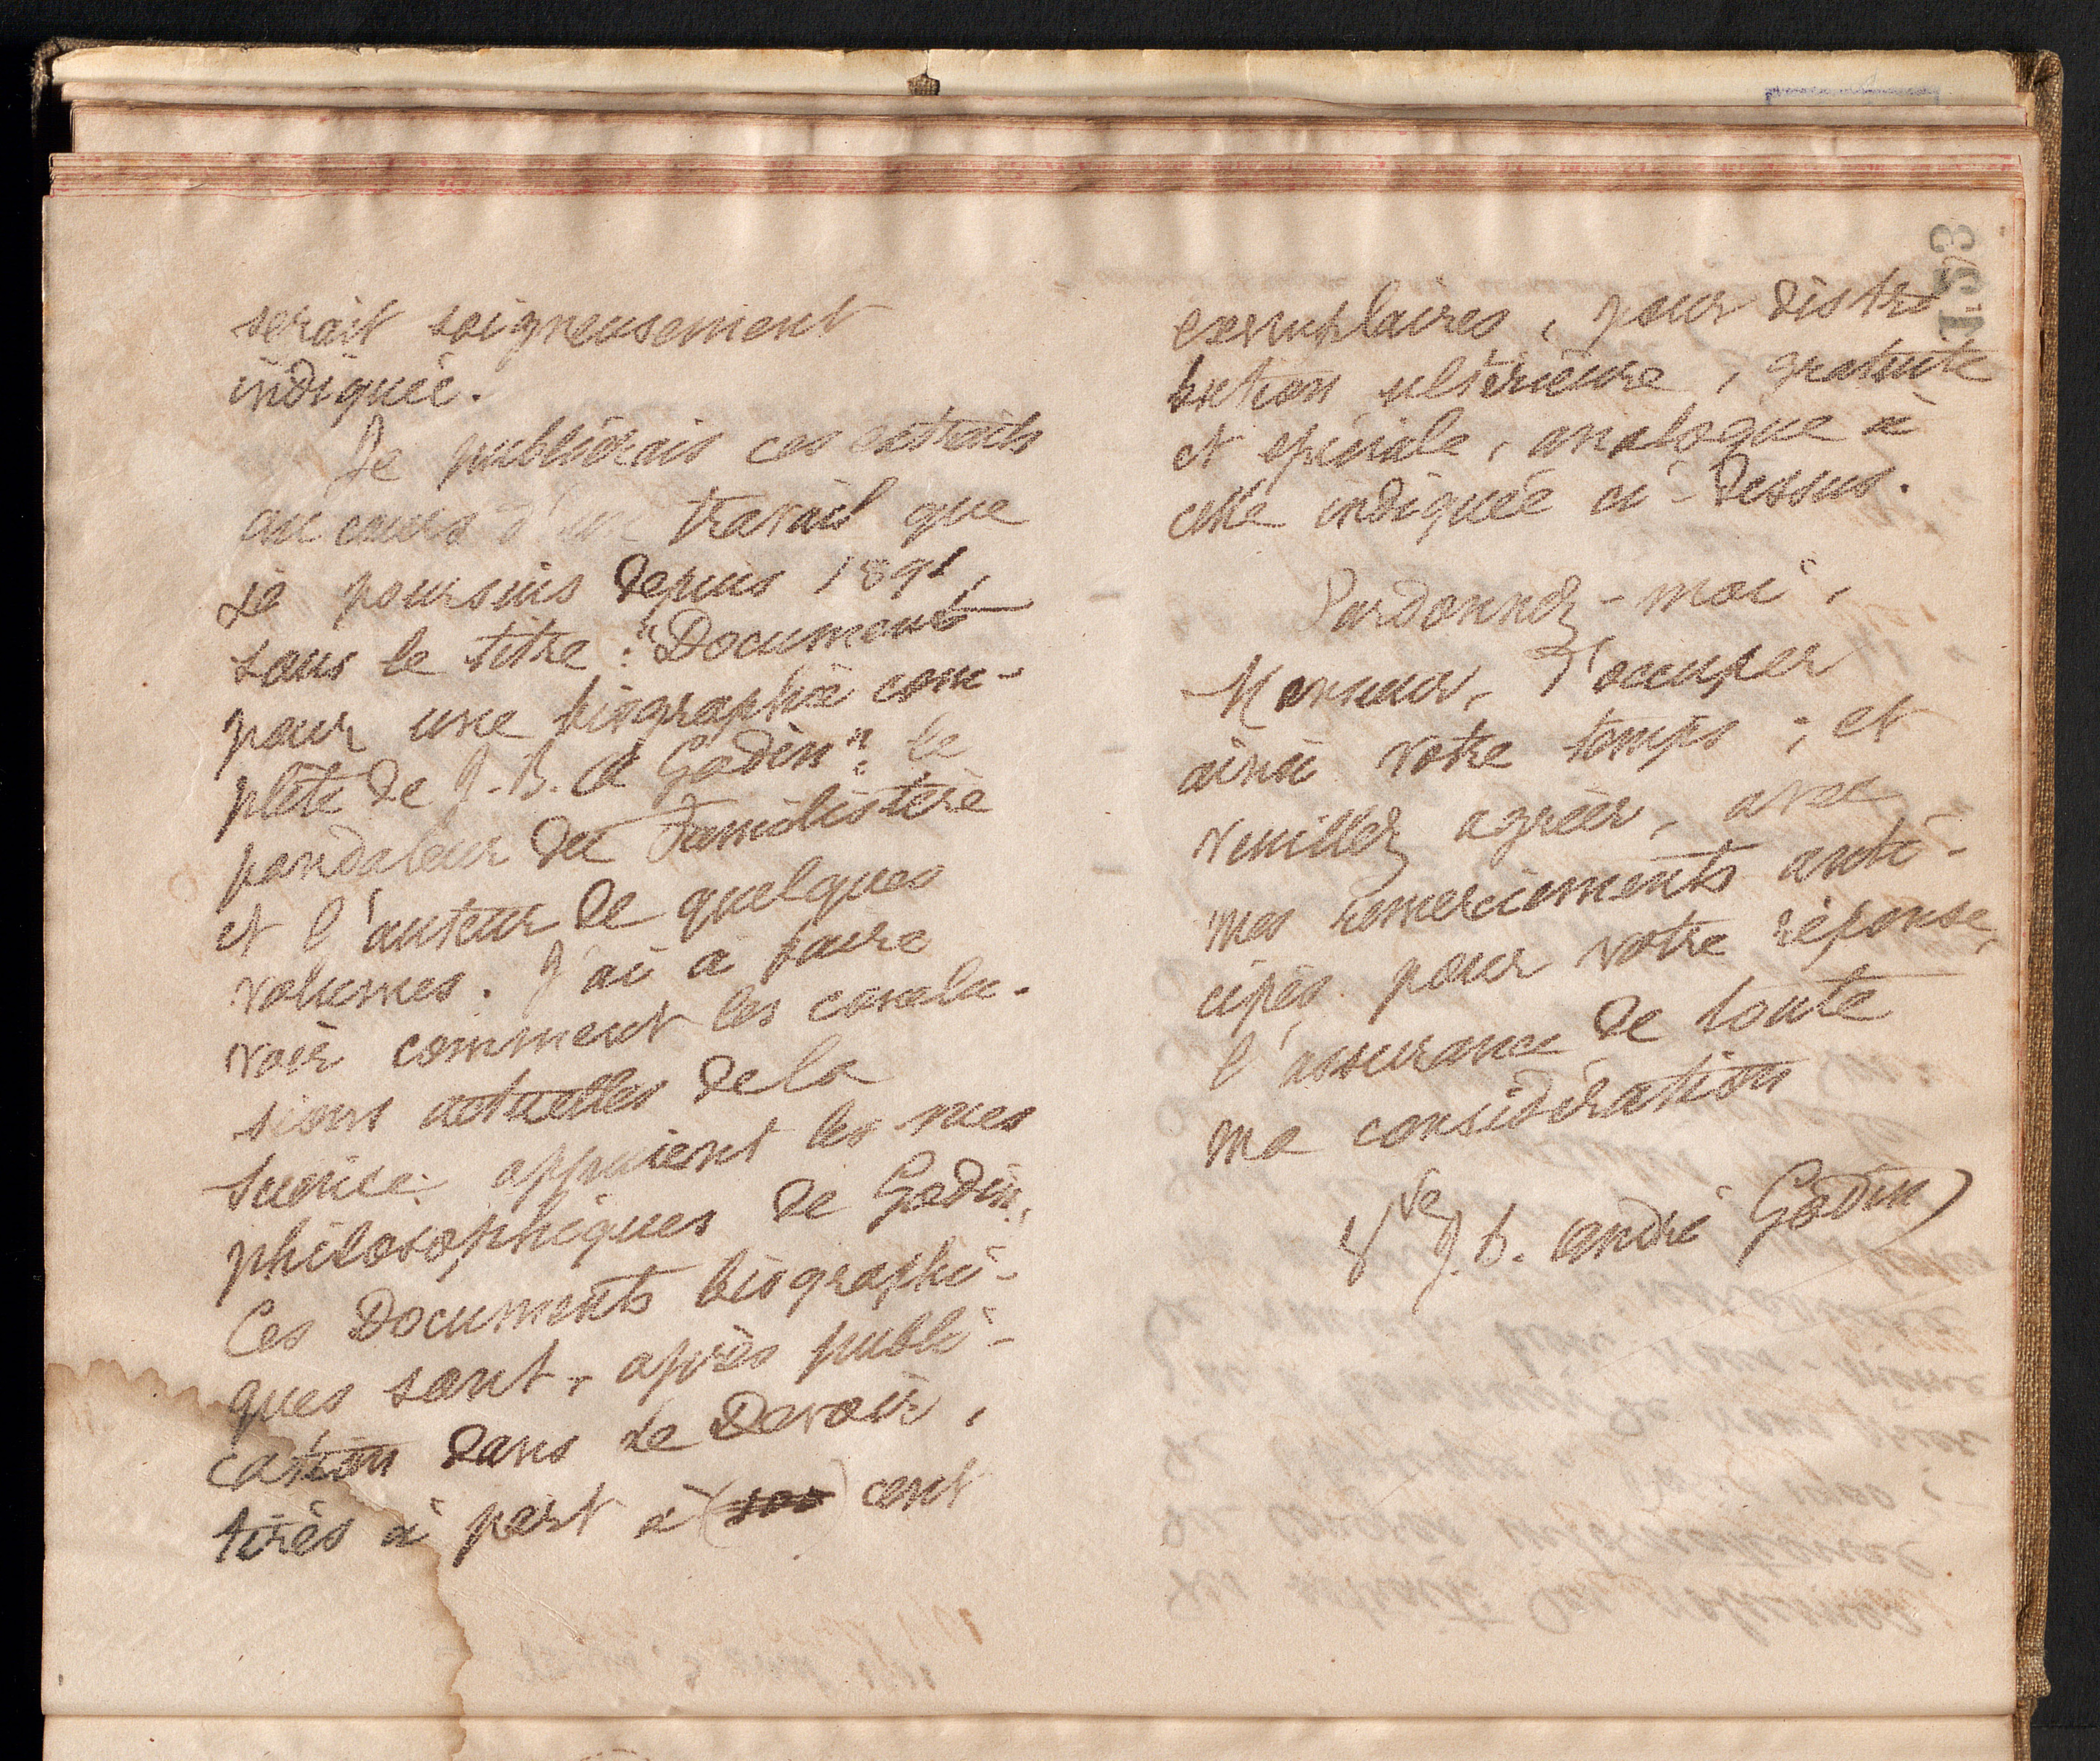 serait soigneusement
indiquée.
Je publierais ces extraits
au cours d'un travail que
je poursuis depuis 1891,
sous le titre : "Documents
pour une biographie com-
plète de J. B. A Godin", le
fondateur du Familistère
et l'auteur de quelques
volumes. J'ai à faire
voir comment les conclu-
sions actuelles de la
Science appuient les vues
philosophiques de Godin.
Ces Documents biographi-
ques sont, après publi-
cation dans le Devoir,
tirés à part à cent
exemplaires, pour distri
bution ultérieure, gratuite
et spéciale, analogue à
celle indiquée ci-dessus.
Pardonnez-moi,
Monsieur, d'occuper
ainsi votre temps ; et
veuillez agréer, avec
mes remerciements anti-
cipés pour votre réponse,
l'assurance de toute
ma considération
Vve J. B. André Godin
153